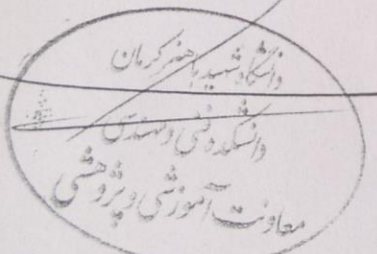 دانشگاه شهید باهنر کرمان
دانشکده فنی و مهندسی
معاونت آموزشی و پژوهشی